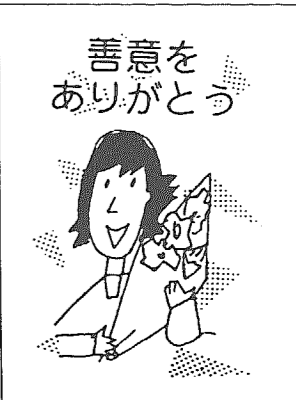 善意を
ありがとう